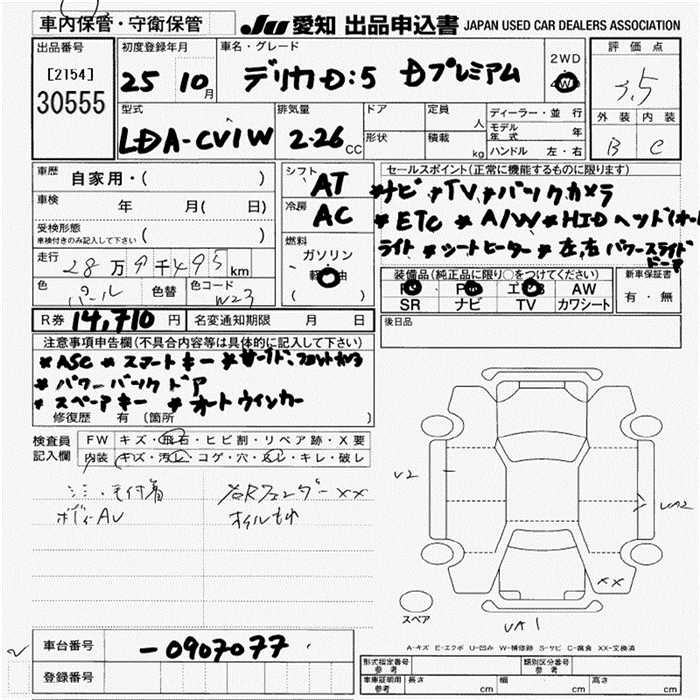 車内保管・守衛保管
JU 愛知 出品申込書 JAPAN USED CAR DEALERS ASSOCIATION
出品番号
[2154]
30555
初度登録年月
25 10月
車名・グレード
デリカD:5 Dプレミアム
2WD
4W
評価点
3.5
外装 内装
B C
型式
LDA-CV1W
排気量
2.26cc
ドア
形状
定員 人
積載 kg
ディーラー・並行
モデル年式 年
ハンドル 左・右
車歴 自家用・( )
車検 年 月( 日)
受検形態
車検付きのみ記入して下さい ( )
走行 28万9千495km
色 パール 色替 色コード W23
シフト AT
冷房 AC
燃料
ガソリン
軽油
( )
セールスポイント(正常に機能するものに限ります)
*ナビ *TV *バックカメラ
*ETC *A/W *HIDヘッド(オート
ライト *シートヒーター *左,右 パワースライド
ドーア
装備品(純正品に限り○をつけてください)
PS PW エアB AW
SR ナビ TV カワシート
新車保証書
有・無
R券 14,710円 名変通知期限 月 日
後日品
注意事項申告欄(不具合内容等は具体的に記入して下さい)
*ASC *スマートキー *サイド、フロントカメラ
*パワーバックドア
*スペアキー *オートウィンカー
修復歴 有 (箇所 )
検査員
記入欄
FW キズ・飛石・ヒビ割・リペア跡・X要
内装 キズ・汚レ・コゲ・穴・スレ・キレ・破レ
シミ・毛付着
ボディーAU
右Rフェンダーxx
オイルもれ
V2
UA2
xx
スペア
UA1
A-キズ E-エクボ U-凹み W-補修跡 S-サビ C-腐食 XX-交換済
車台番号 -0907077
登録番号
型式指定番号
参考
類別区分番号
参考
車庫証明用
参考
長さ cm 幅 cm 高さ cm